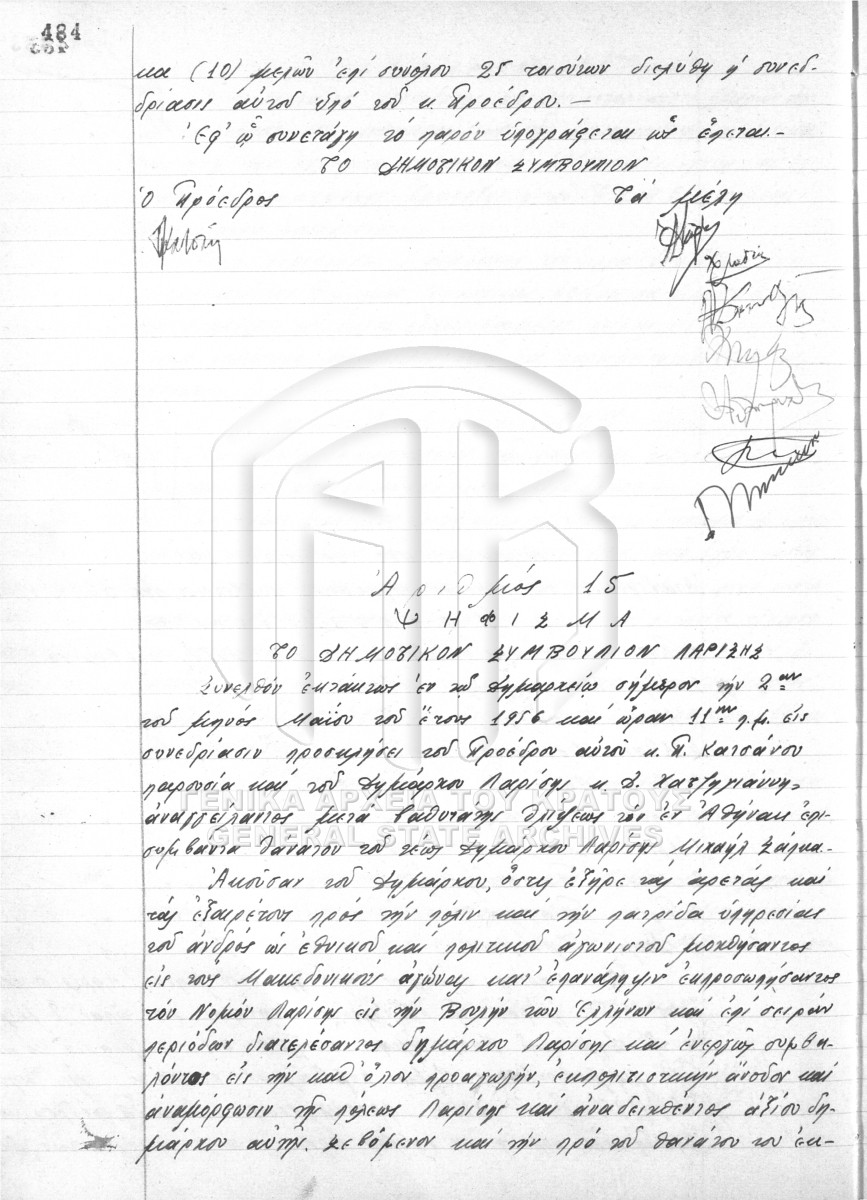 484
κα (10) μελῶν ἐπί συνόλου 25 τοιούτων διελύθη ἡ συνεδ-
ρίασις αὐτοῦ ὑπό τοῦ κ. Προέδρου.—
Ἐφ' ᾧ συνετάγη τό παρόν ὑπογράφεται ὡς ἕπεται.-
ΤΟ ΔΗΜΟΤΙΚΟΝ ΣΥΜΒΟΥΛΙΟΝ
Ὁ Πρόεδρος Τά μέλη
Ἀριθμός 15
ΨΗΦΙΣΜΑ
ΤΟ ΔΗΜΟΤΙΚΟΝ ΣΥΜΒΟΥΛΙΟΝ ΛΑΡΙΣΗΣ
Συνελθόν ἐκτάκτως ἐν τῷ Δημαρχείῳ σήμερον τήν 2αν
τοῦ μηνός Μαΐου τοῦ ἔτους 1956 καί ὥραν 11ην π.μ. εἰς
συνεδρίασιν προσκλήσει τοῦ Προέδρου αὐτοῦ κ. Π. Κατσάνου
παρουσία καί τοῦ Δημάρχου Λαρίσης κ. Δ. Χατζηγιάννη,
ἀναγγείλαντος μετά βαθυτάτης θλίψεως τόν ἐν Ἀθήναις ἐπι-
συμβάντα θάνατον τοῦ τέως Δημάρχου Λαρίσης Μιχαήλ Σάπκα-
ΓΕΝΙΚΑ ΑΡΧΕΙΑ ΤΟΥ ΚΡΑΤΟΥΣ
GENERAL STATE ARCHIVES
Ἀκοῦσαν τοῦ Δημάρχου, ὅστις ἐξῆρε τάς ἀρετάς καί
τάς ἐξαιρέτους πρός τήν πόλιν καί τήν πατρίδα ὑπηρεσίας
τοῦ ἀνδρός ὡς ἐθνικοῦ καί πολιτικοῦ ἀγωνιστοῦ μοχθήσαντος
εἰς τούς Μακεδονικούς ἀγῶνας κατ' ἐπανάληψιν ἐκπροσωπήσαντος
τόν Νομόν Λαρίσης εἰς τήν Βουλήν τῶν Ἑλλήνων καί ἐπί σειράν
περιόδων διατελέσαντος δημάρχου Λαρίσης καί ἐνεργῶς συμβα-
λόντος εἰς τήν καθ' ὅλον προαγωγήν, ἐκπολιτιστικήν ἄνοδον καί
ἀναμόρφωσιν τῆς πόλεως Λαρίσης καί ἀναδειχθέντος ἀξίου δη-
μάρχου αὐτῆς. Σεβόμενον καί τήν πρό τοῦ θανάτου του ἐκ-